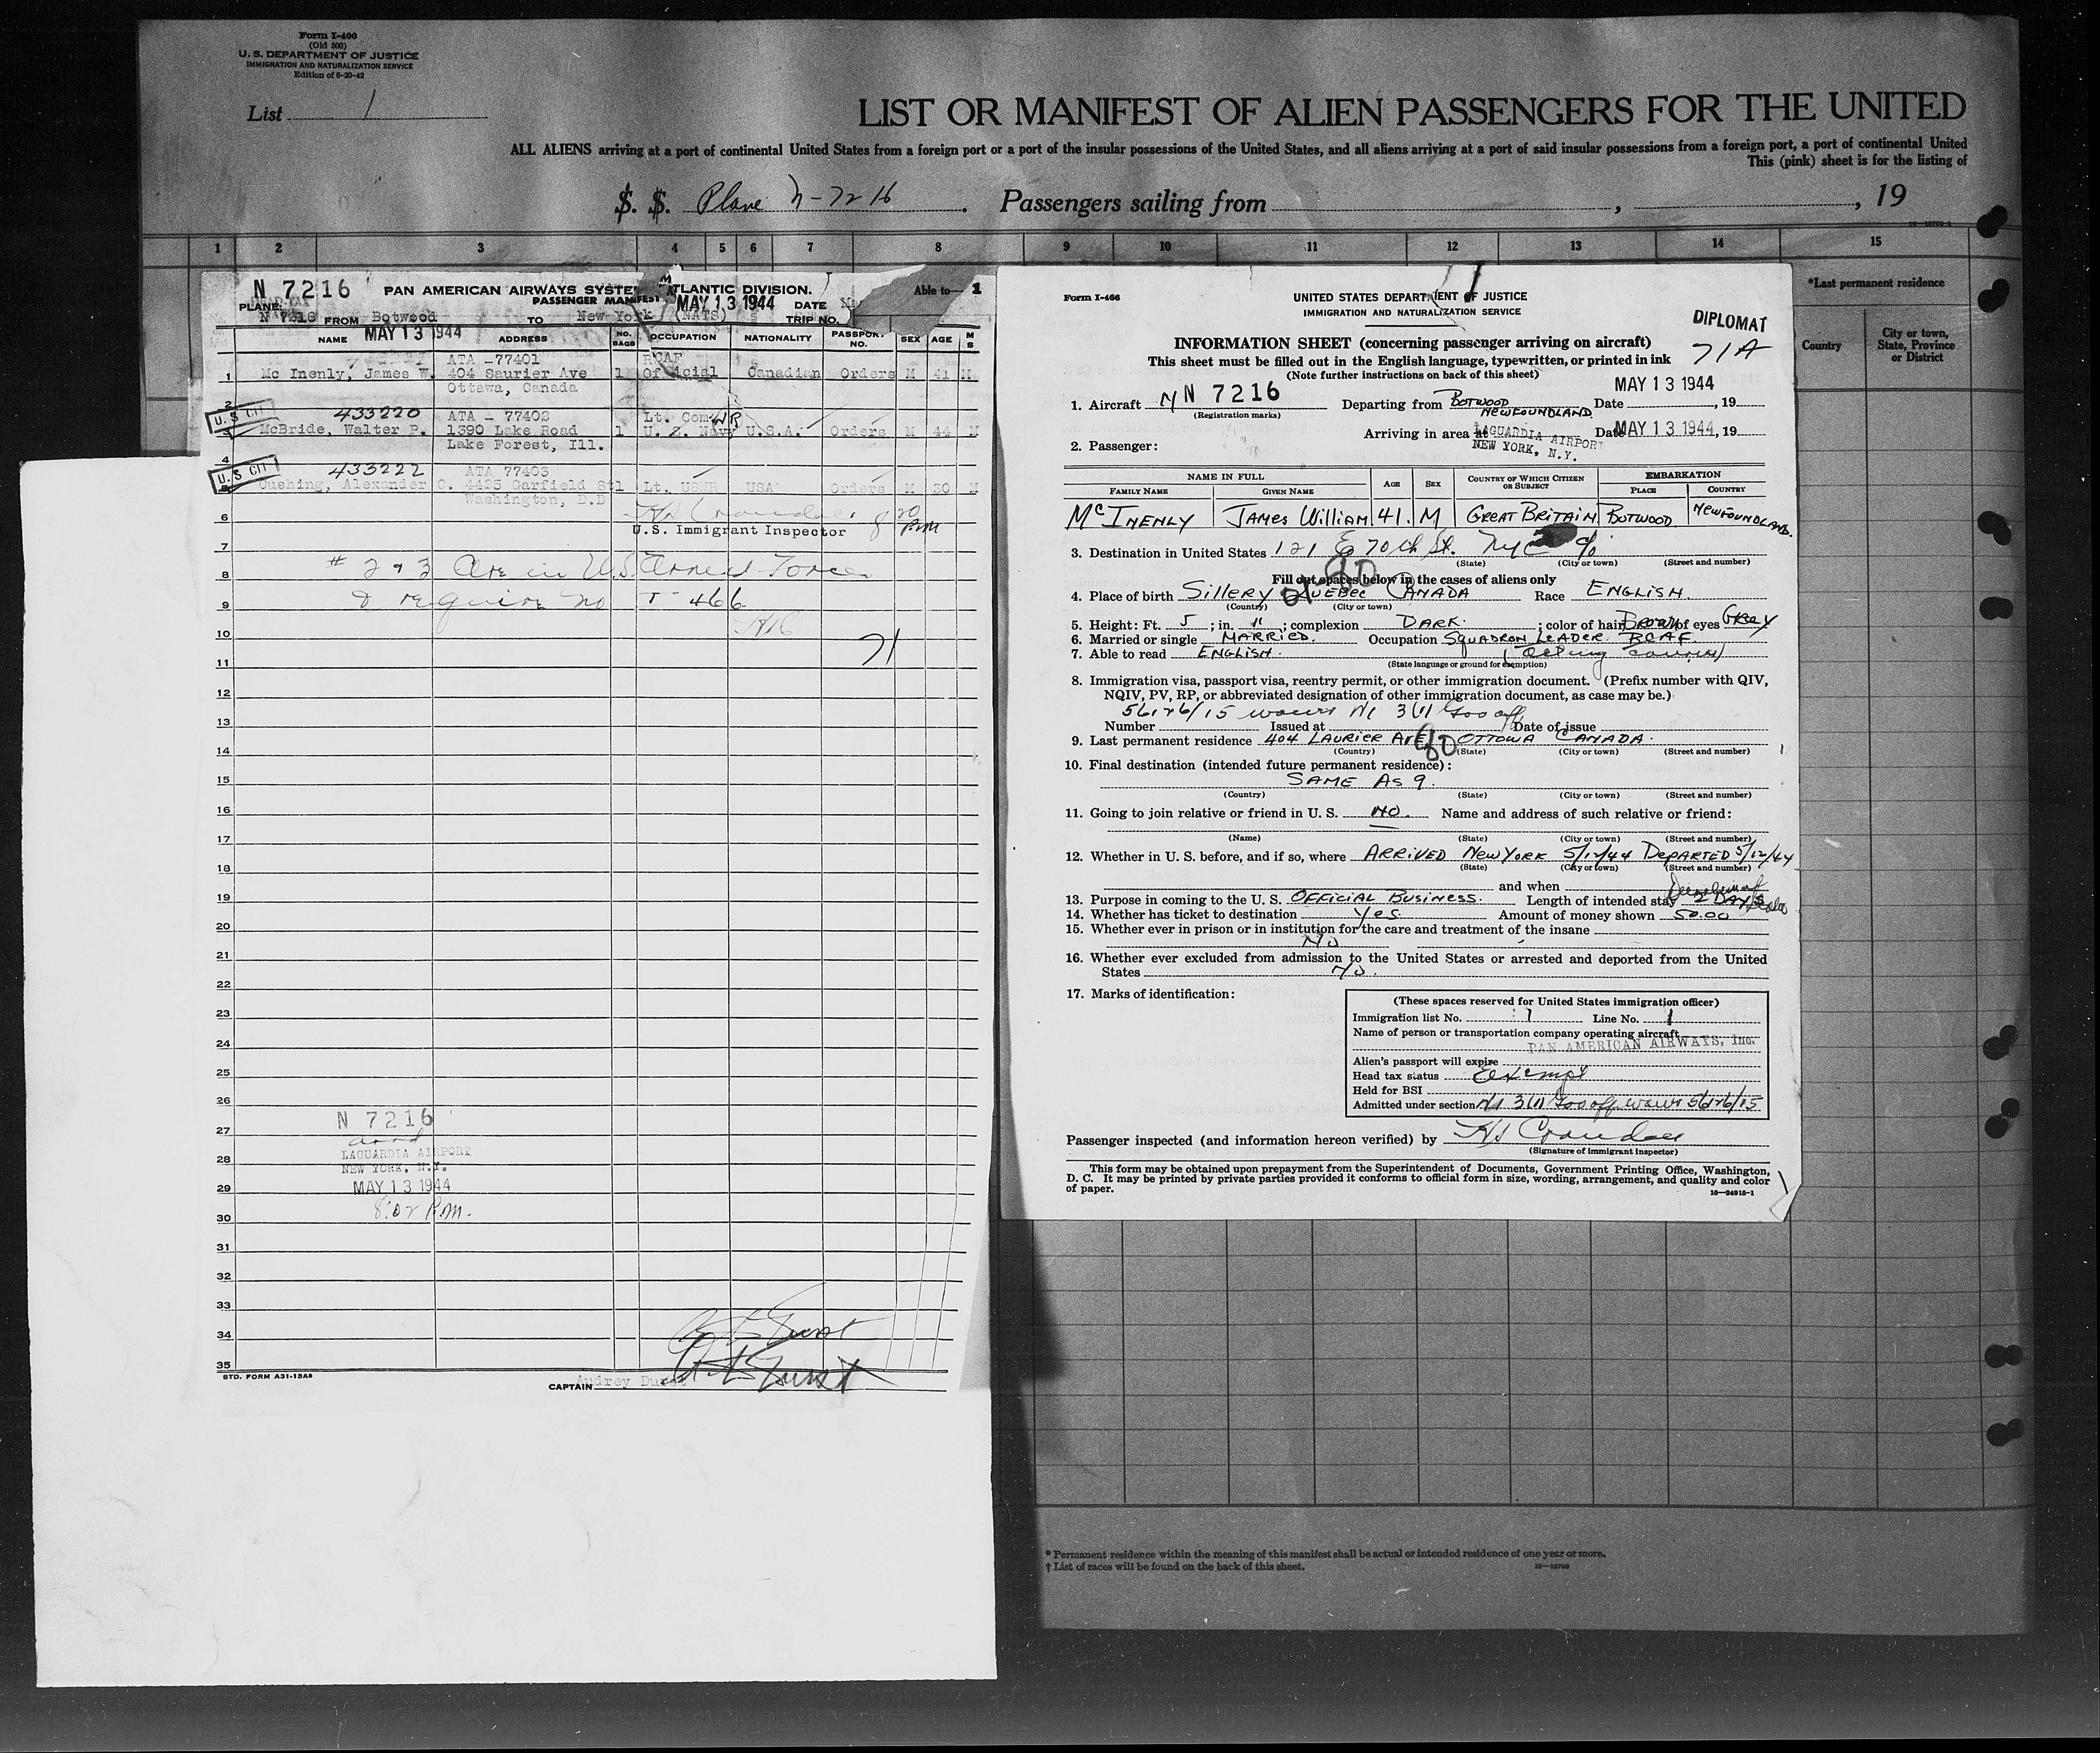 Form I-466
(Old 500)
U. S. DEPARTMENT OF JUSTICE
IMMIGRATION AND NATURALIZATION SERVICE
Edition of 6-20-42
List 1
LIST OR MANIFEST OF ALIEN PASSENGERS FOR THE UNITED
ALL ALIENS arriving at a port of continental United States from a foreign port or a port of the insular possessions of the United States, and all aliens arriving at a port of said insular possessions from a foreign port, a port of continental United
This (pink) sheet is for the listing of
S. S. Plane N-7216. Passengers sailing from , , 19
1 2 3 4 5 6 7 8 9 10 11 12 13 14 15
*Last permanent residence
Country
City or town, State, Province or District
Able to— 1
N 7216 PAN AMERICAN AIRWAYS SYSTEM ATLANTIC DIVISION.
PASSENGER MANIFEST MAY 13 1944 DATE
PLANE N 7216 FROM Botwood TO New York (NATS) TRIP NO.
MAY 13 1944
NAME ADDRESS NO. BAGS OCCUPATION NATIONALITY PASSPORT NO. SEX AGE M S
ATA -77401 RCAF
1 Mc Inenly, James W. 404 Saurier Ave 1 Official Canadian Orders M 41 M
Ottawa, Canada
2
U.S CIT 433220 ATA - 77402 Lt. Com
3 McBride, Walter P. 1390 Lake Road 1 U. S. Navy U.S.A. Orders M 44 M
Lake Forest, Ill.
4
U.S CIT 433222 ATA 77403
5 Cushing, Alexander C. 4425 Garfield St 1 Lt. USNR USA Orders M 30 M
Washington, D.D
6 8 20 P.M
U.S. Immigrant Inspector
7
# 2 & 3 are in U.S. Armed Forces
8
& require no I 466
9
10
71
11
12
13
14
15
16
17
18
19
20
21
22
23
24
25
26
N 7216
27
LAGUARDIA AIRPORT
28
NEW YORK, N.Y.
29 MAY 13 1944
8:02 P.M.
30
31
32
33
34
35
STD. FORM A31-13A
CAPTAIN Audrey Durst
Form I-466
UNITED STATES DEPARTMENT OF JUSTICE
IMMIGRATION AND NATURALIZATION SERVICE
DIPLOMAT
INFORMATION SHEET (concerning passenger arriving on aircraft)
71A
This sheet must be filled out in the English language, typewritten, or printed in ink
(Note further instructions on back of this sheet)
1. Aircraft N N 7216 Departing from BOTWOOD NEWFOUNDLAND Date MAY 13 1944, 19
(Registration marks)
Arriving in area at LAGUARDIA AIRPORT NEW YORK, N.Y. Date MAY 13 1944, 19
2. Passenger:
NAME IN FULL AGE SEX COUNTRY OF WHICH CITIZEN OR SUBJECT EMBARKATION
FAMILY NAME GIVEN NAME PLACE COUNTRY
McINENLY JAMES WILLIAM 41. M GREAT BRITAIN BOTWOOD NEWFOUNDLAND.
3. Destination in United States 121 E 70th St. NYC
(State) (City or town) (Street and number)
Fill out spaces below in the cases of aliens only
4. Place of birth SILLERY QUEBEC CANADA Race ENGLISH.
(Country) (City or town)
5. Height: Ft. 5 ; in. 11 ; complexion DARK. ; color of hair BROWN of eyes GREY
6. Married or single MARRIED. Occupation SQUADRON LEADER RCAF.
7. Able to read ENGLISH.
(State language or ground for exemption)
8. Immigration visa, passport visa, reentry permit, or other immigration document. (Prefix number with QIV, NQIV, PV, RP, or abbreviated designation of other immigration document, as case may be.)
Number Issued at Date of issue
9. Last permanent residence 404 LAURIER AVE OTTOWA CANADA.
(Country) (State) (City or town) (Street and number)
10. Final destination (intended future permanent residence):
SAME AS 9.
(Country) (State) (City or town) (Street and number)
11. Going to join relative or friend in U. S. NO. Name and address of such relative or friend:
(Name) (State) (City or town) (Street and number)
12. Whether in U. S. before, and if so, where ARRIVED NEW YORK 5/12/44 DEPARTED 5/12/44
(State) (City or town) (Street and number)
and when
13. Purpose in coming to the U. S. OFFICIAL BUSINESS. Length of intended stay 2 DAYS
14. Whether has ticket to destination Yes Amount of money shown 50.00
15. Whether ever in prison or in institution for the care and treatment of the insane
No
16. Whether ever excluded from admission to the United States or arrested and deported from the United
States No.
17. Marks of identification:
(These spaces reserved for United States immigration officer)
Immigration list No. 1 Line No. 1
Name of person or transportation company operating aircraft
PAN AMERICAN AIRWAYS, Inc.
Alien's passport will expire
Head tax status Exempt
Held for BSI
Admitted under section
Passenger inspected (and information hereon verified) by
(Signature of immigrant inspector)
This form may be obtained upon prepayment from the Superintendent of Documents, Government Printing Office, Washington,
D. C. It may be printed by private parties provided it conforms to official form in size, wording, arrangement, and quality and color
of paper.
16—24915-1
* Permanent residence within the meaning of this manifest shall be actual or intended residence of one year or more.
† List of races will be found on the back of this sheet.